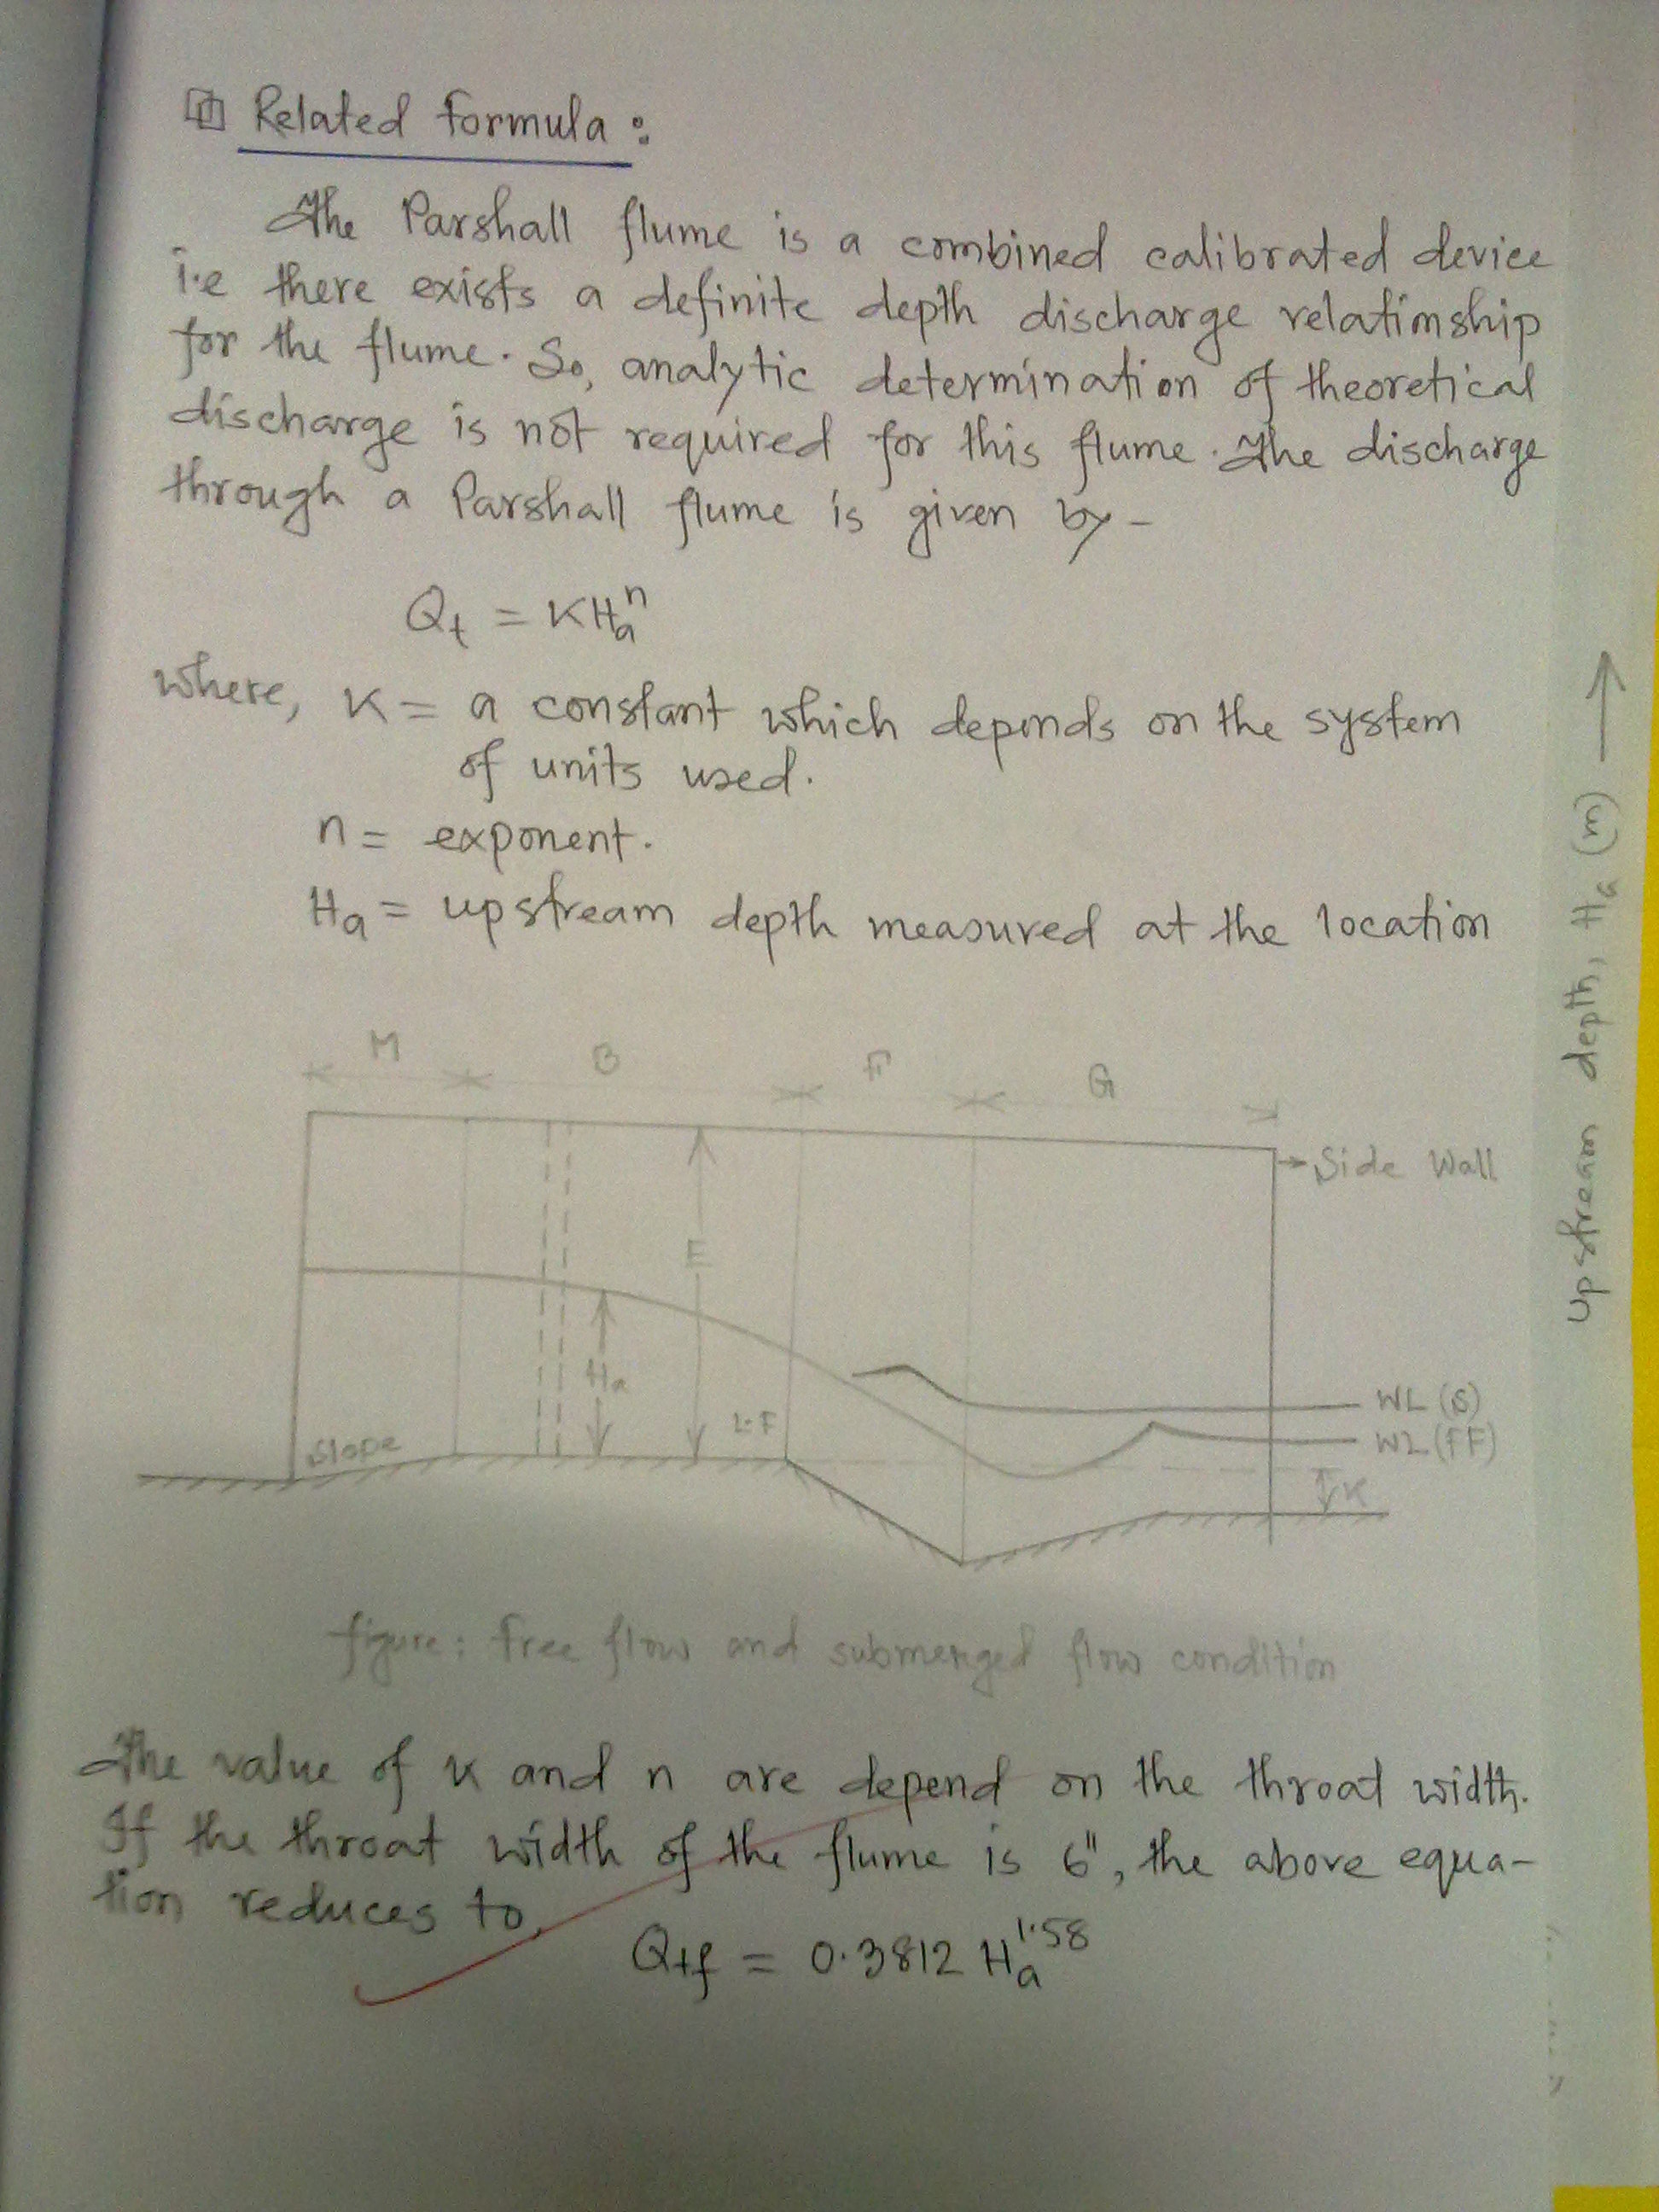 Related formula :
The Parshall flume is a combined calibrated device
i.e there exists a definite depth discharge relationship
for the flume. So, analytic determination of theoretical
discharge is not required for this flume. The discharge
through a Parshall flume is given by -
Qt = KHa^n
where, K = a constant which depends on the system
of units used.
n = exponent.
Ha = upstream depth measured at the location
M B F G
Side Wall
E
Ha
L.F
Slope
WL (S)
WL (FF)
K
figure: Free flow and submerged flow condition
The value of K and n are depend on the throat width.
If the throat width of the flume is 6", the above equa-
tion reduces to,
Qtf = 0.3812 Ha^1.58
upstream depth, Ha (m) →